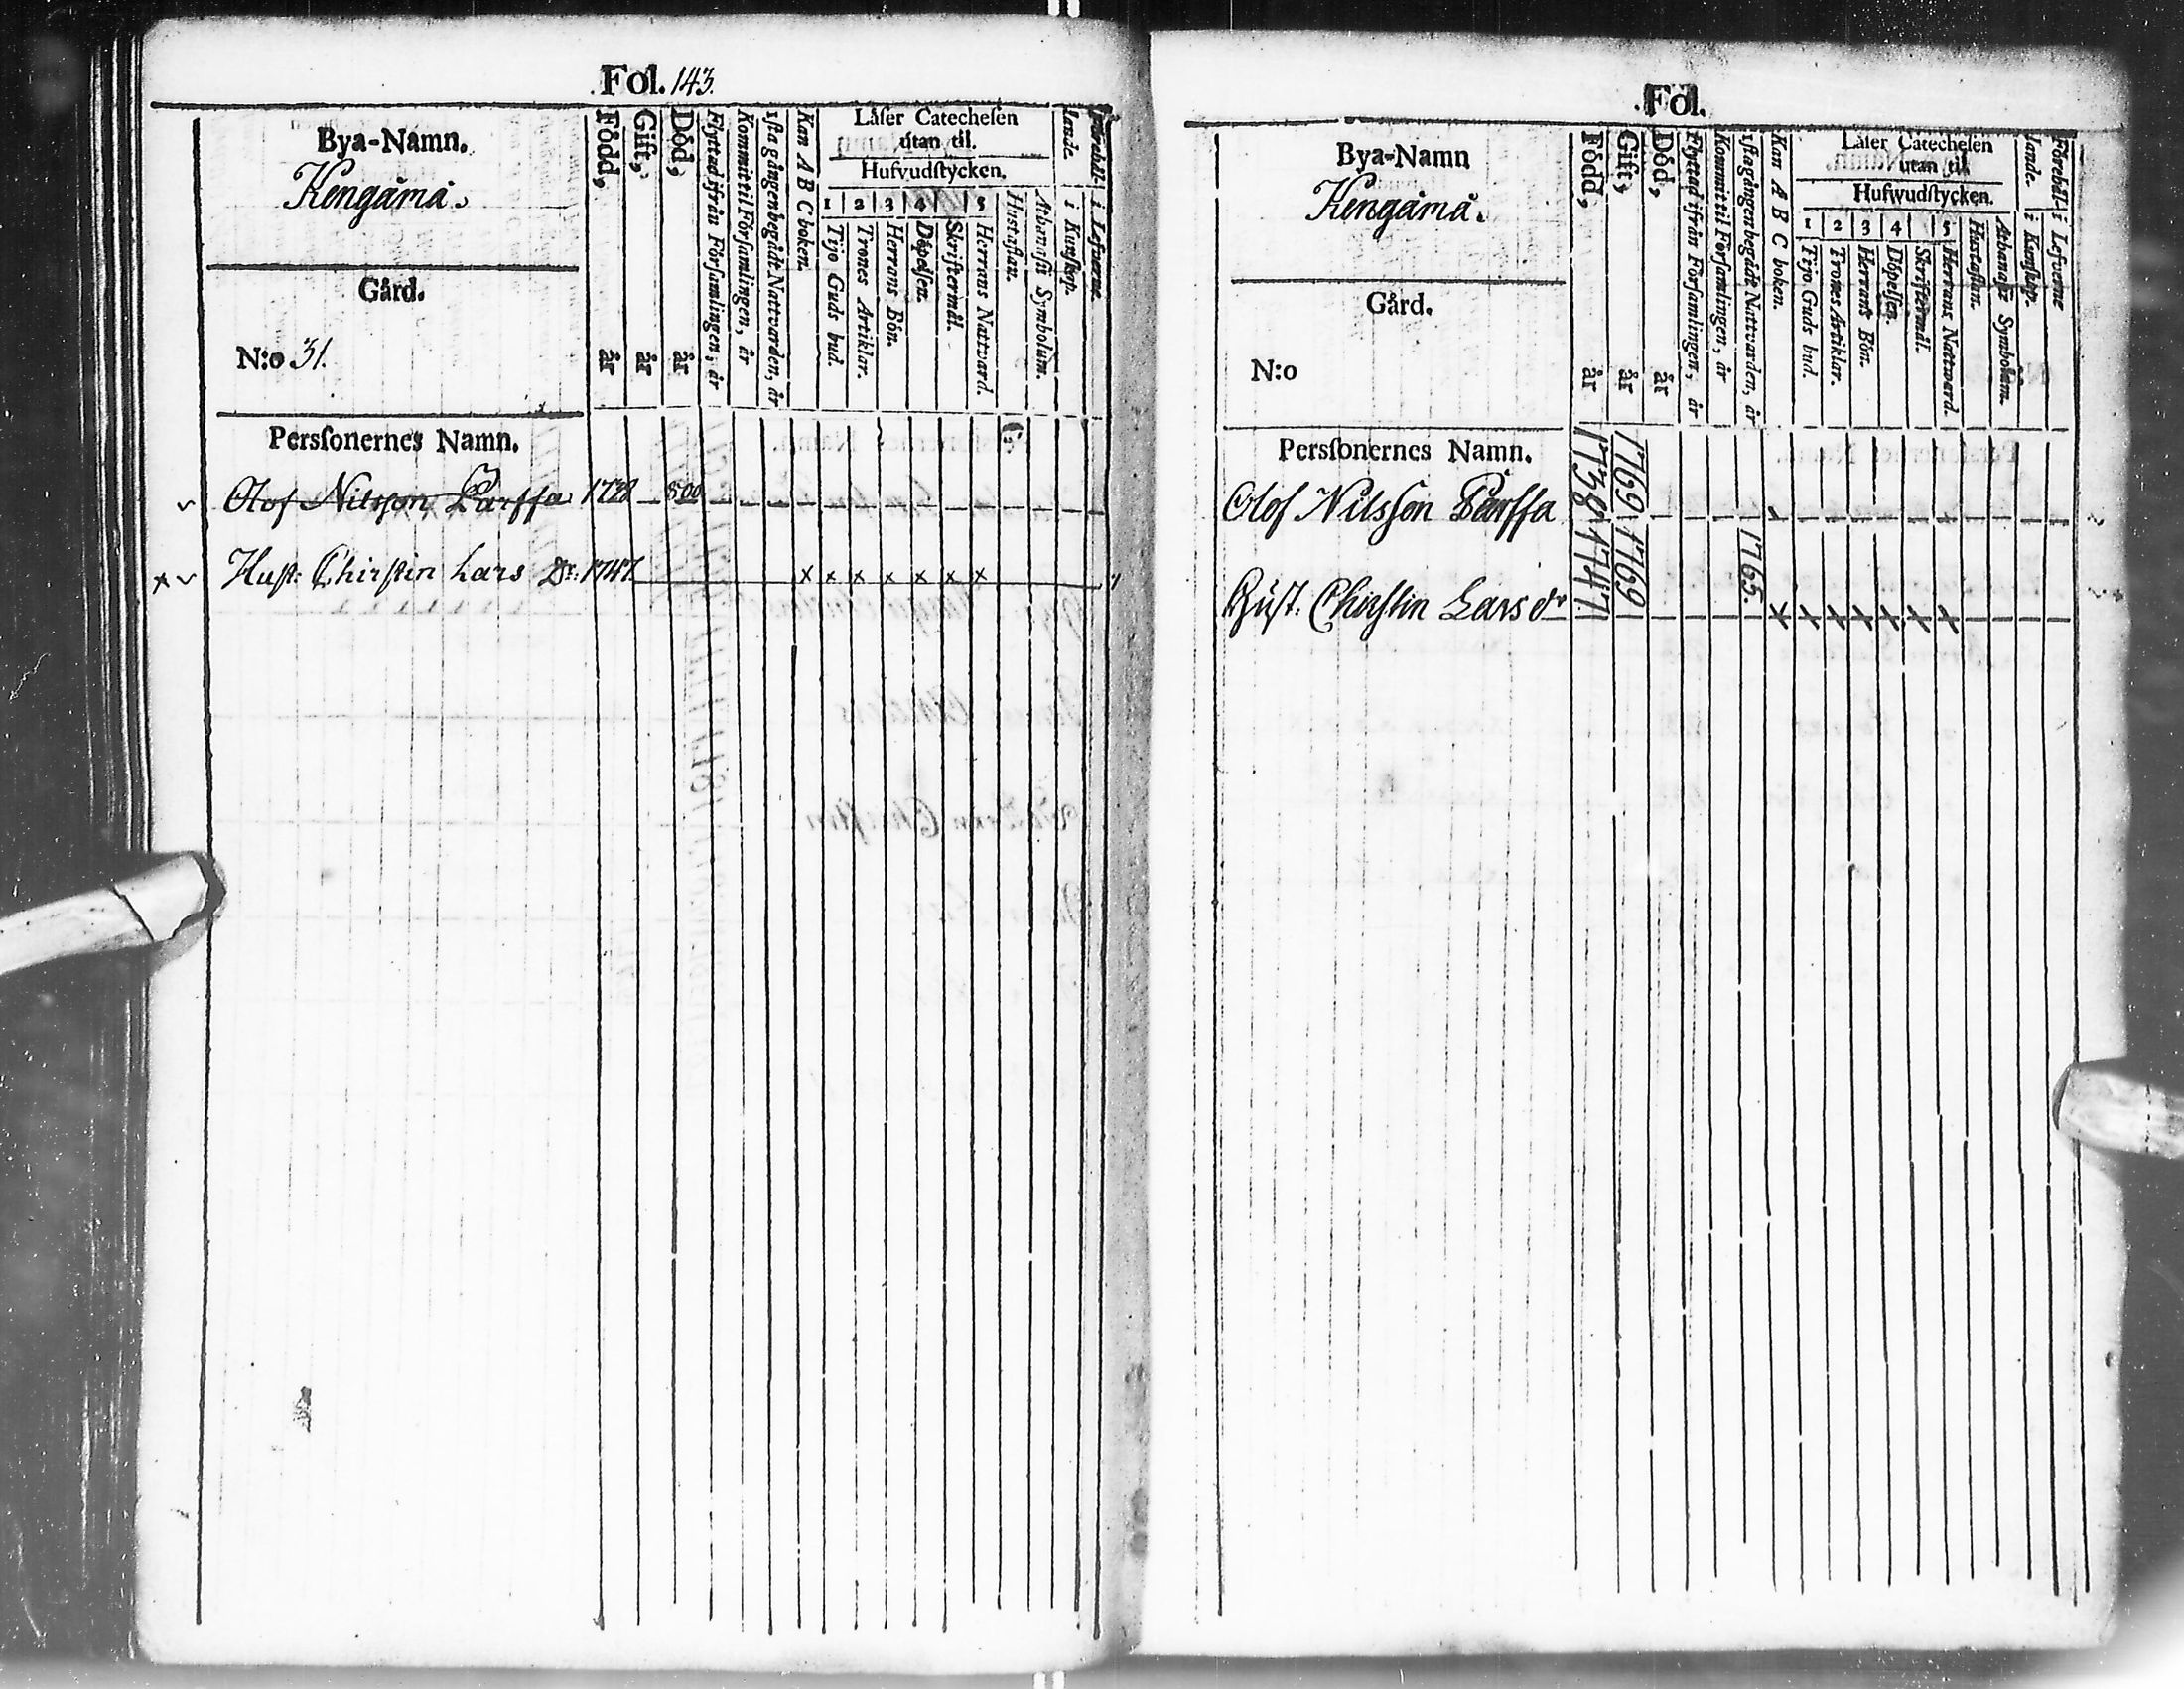 Fol. 143.
Bya-Namn.
Kengämä.
Gård.
N:o 31.
Född, år
Gift, år
Död, år
Flyttad ifrån Församlingen, år
Kommit til Församlingen, år
1sta gången begådt Nattvarden, år
Kan A B C boken.
Låser Catechesen
utan til.
Hufvudstycken.
1 2 3 4 5
Tijo Guds bud.
Trones Artiklar.
Herrans Bön.
Döpelsen.
Skriftermål.
Herrans Nattvard.
Hustaflan.
Athanasii Symbolum.
lande i Kunskap.
i Lefverne
Persſonernes Namn.
Olof Nilsson Parffa 1738 800
x Hust: Chirstin Lars Dr: 1747. x x x x x x x
Fol.
Bya-Namn
Kengämä.
Gård.
N:o
Född, år
Gift, år
Död, år
Flyttad ifrån Församlingen, år
Kommit til Församlingen, år
1sta gången begådt Nattvarden, år
Kan A B C boken.
Låser Catechesen
utan til
Hufwudstycken.
1 2 3 4 5
Tijo Guds bud.
Trones Artiklar.
Herrans Bön.
Döpelsen.
Skriftermål.
Herrans Nattward.
Hustaflan.
Athanasii Symbolum.
Förehållande i Kunskap.
i Lefverne
Persſonernes Namn.
Olof Nilsson Parffa 1738 1769
Hust: Chirstin Lars dr 1747 1769 1765. x x x x x x x